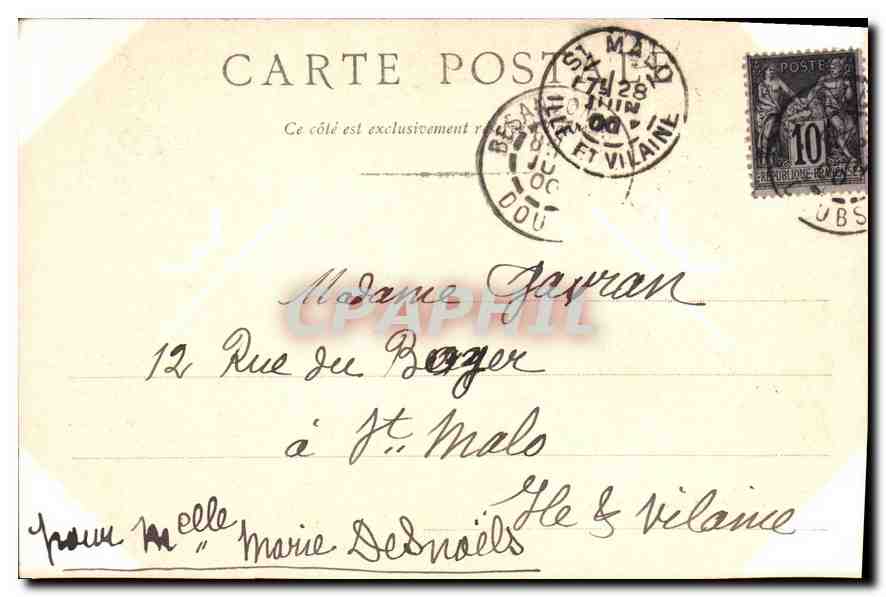 CARTE POST
Ce côté est exclusivement ré
ST MALO
7E 28
JUIN
00
ILLE ET VILAINE
BESA
JU
00
DOU
POSTE
10
REPUBLIQUE FRANÇAISE
UBS
CPAPHIL
Madame Gavran
12 Rue du Boyer
à St. Malo
Ile & Vilaine
pour Melle Marie Desnoëls